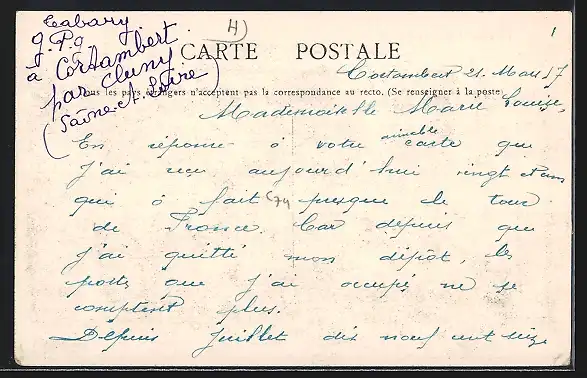 Labary
J.P.g
à Cortambert
par Cluny
(Saône-et-Loire)
H)
CARTE POSTALE
1
Cortambert 21. Mars 17
Tous les pays étrangers n'acceptent pas la correspondance au recto. (Se renseigner à la poste
Mademoiselle Marie Louise,
En réponse à votre aimable carte que
j'ai reçu aujourd'hui vingt et un
qui à fait presque le tour
C74
de France. Car depuis que
j'ai quitté mon dépôt, les
postes que j'ai occupé ne se
comptent plus.
Depuis Juillet dix neuf cent seize